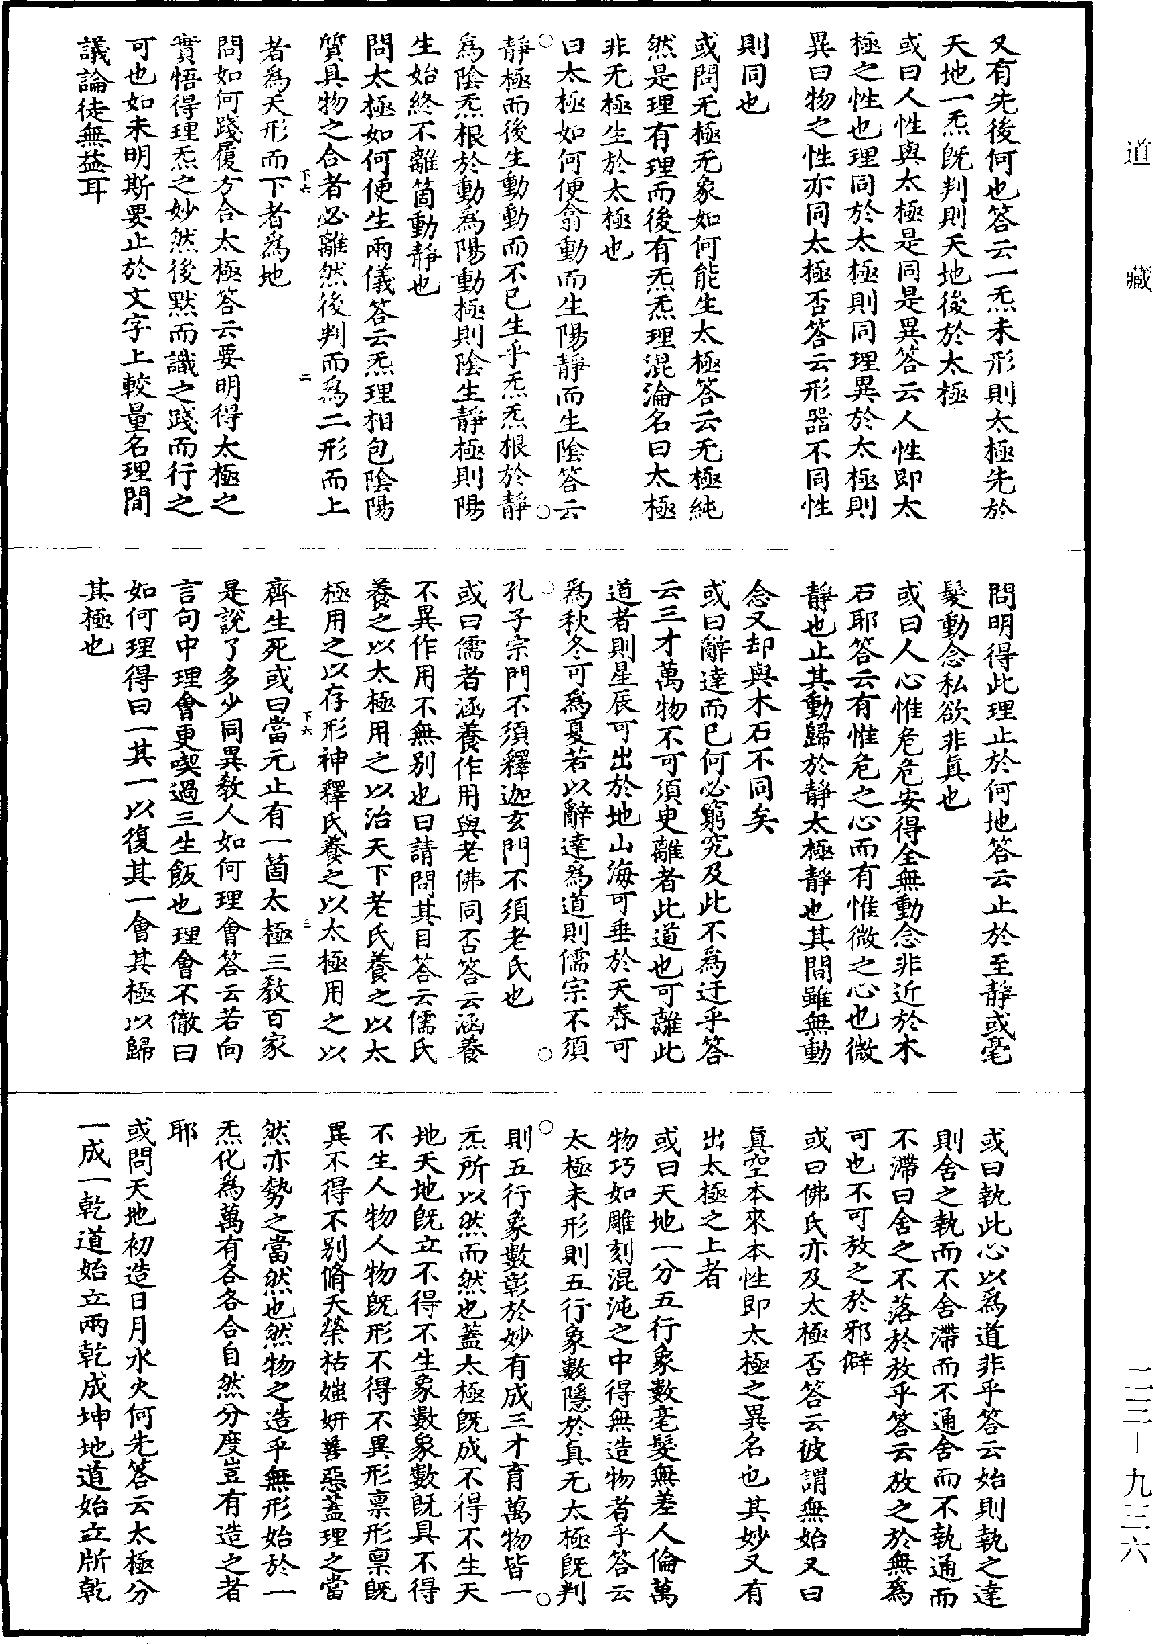 道藏
又有先後何也答云一炁未形則太極先於
天地一炁既判則天地後於太極
或曰人性與太極是同是異答云人性即太
極之性也理同於太極則同理異於太極則
異曰物之性亦同太極否答云形器不同性
則同也
或問无極无象如何能生太極答云无極純
然是理有理而後有炁炁理混淪名曰太極
非无極生於太極也
曰太極如何便翕動而生陽靜而生陰答云
靜極而後生動動而不已生乎炁炁根於靜
為陰炁根於動為陽動極則陰生靜極則陽
生始終不離箇動靜也
問太極如何便生兩儀答云炁理相包陰陽
質具物之合者必離然後判而為二形而上
下六
二
者為天形而下者為地
問如何踐履方合太極答云要明得太極之
實悟得理炁之妙然後默而識之踐而行之
可也如未明斯要止於文字上較量名理間
議論徒無益耳
問明得此理止於何地答云止於至靜或毫
髮動念私欲非真也
或曰人心惟危危安得全無動念非近於木
石耶答云有惟危之心而有惟微之心也微
靜也止其動歸於靜太極靜也其間雖無動
念又却與木石不同矣
或曰辭達而已何必窮究及此不為迂乎答
云三才萬物不可須臾離者此道也可離此
道者則星辰可出於地山海可垂於天春可
為秋冬可為夏若以辭達為道則儒宗不須
孔子宗門不須釋迦玄門不須老氏也
或曰儒者涵養作用與老佛同否答云涵養
不異作用不無別也曰請問其目答云儒氏
養之以太極用之以治天下老氏養之以太
極用之以存形神釋氏養之以太極用之以
下六
三
齊生死或曰當元止有一箇太極三教百家
是說了多少同異教人如何理會答云若向
言句中理會更喫過三生飯也理會不徹曰
如何理得曰一其一以復其一會其極以歸
其極也
或曰執此心以為道非乎答云始則執之達
則舍之執而不舍滯而不通舍而不執通而
不滯曰舍之不落於放乎答云放之於無為
可也不可放之於邪僻
或曰佛氏亦及太極否答云彼謂無始又曰
真空本來本性即太極之異名也其妙又有
出太極之上者
或曰天地一分五行象數毫髮無差人倫萬
物巧如雕刻混沌之中得無造物者乎答云
太極未形則五行象數隱於真无太極既判
則五行象數彰於妙有成三才育萬物皆一
炁所以然而然也蓋太極既成不得不生天
地天地既立不得不生象數象數既具不得
不生人物人物既形不得不異形稟形稟既
異不得不別脩夭榮枯媸妍善惡蓋理之當
然亦勢之當然也然物之造乎無形始於一
炁化為萬有各各合自然分度豈有造之者
耶
或問天地初造日月水火何先答云太極分
一成一乾道始立兩乾成坤地道始立斯乾
二三—九三六